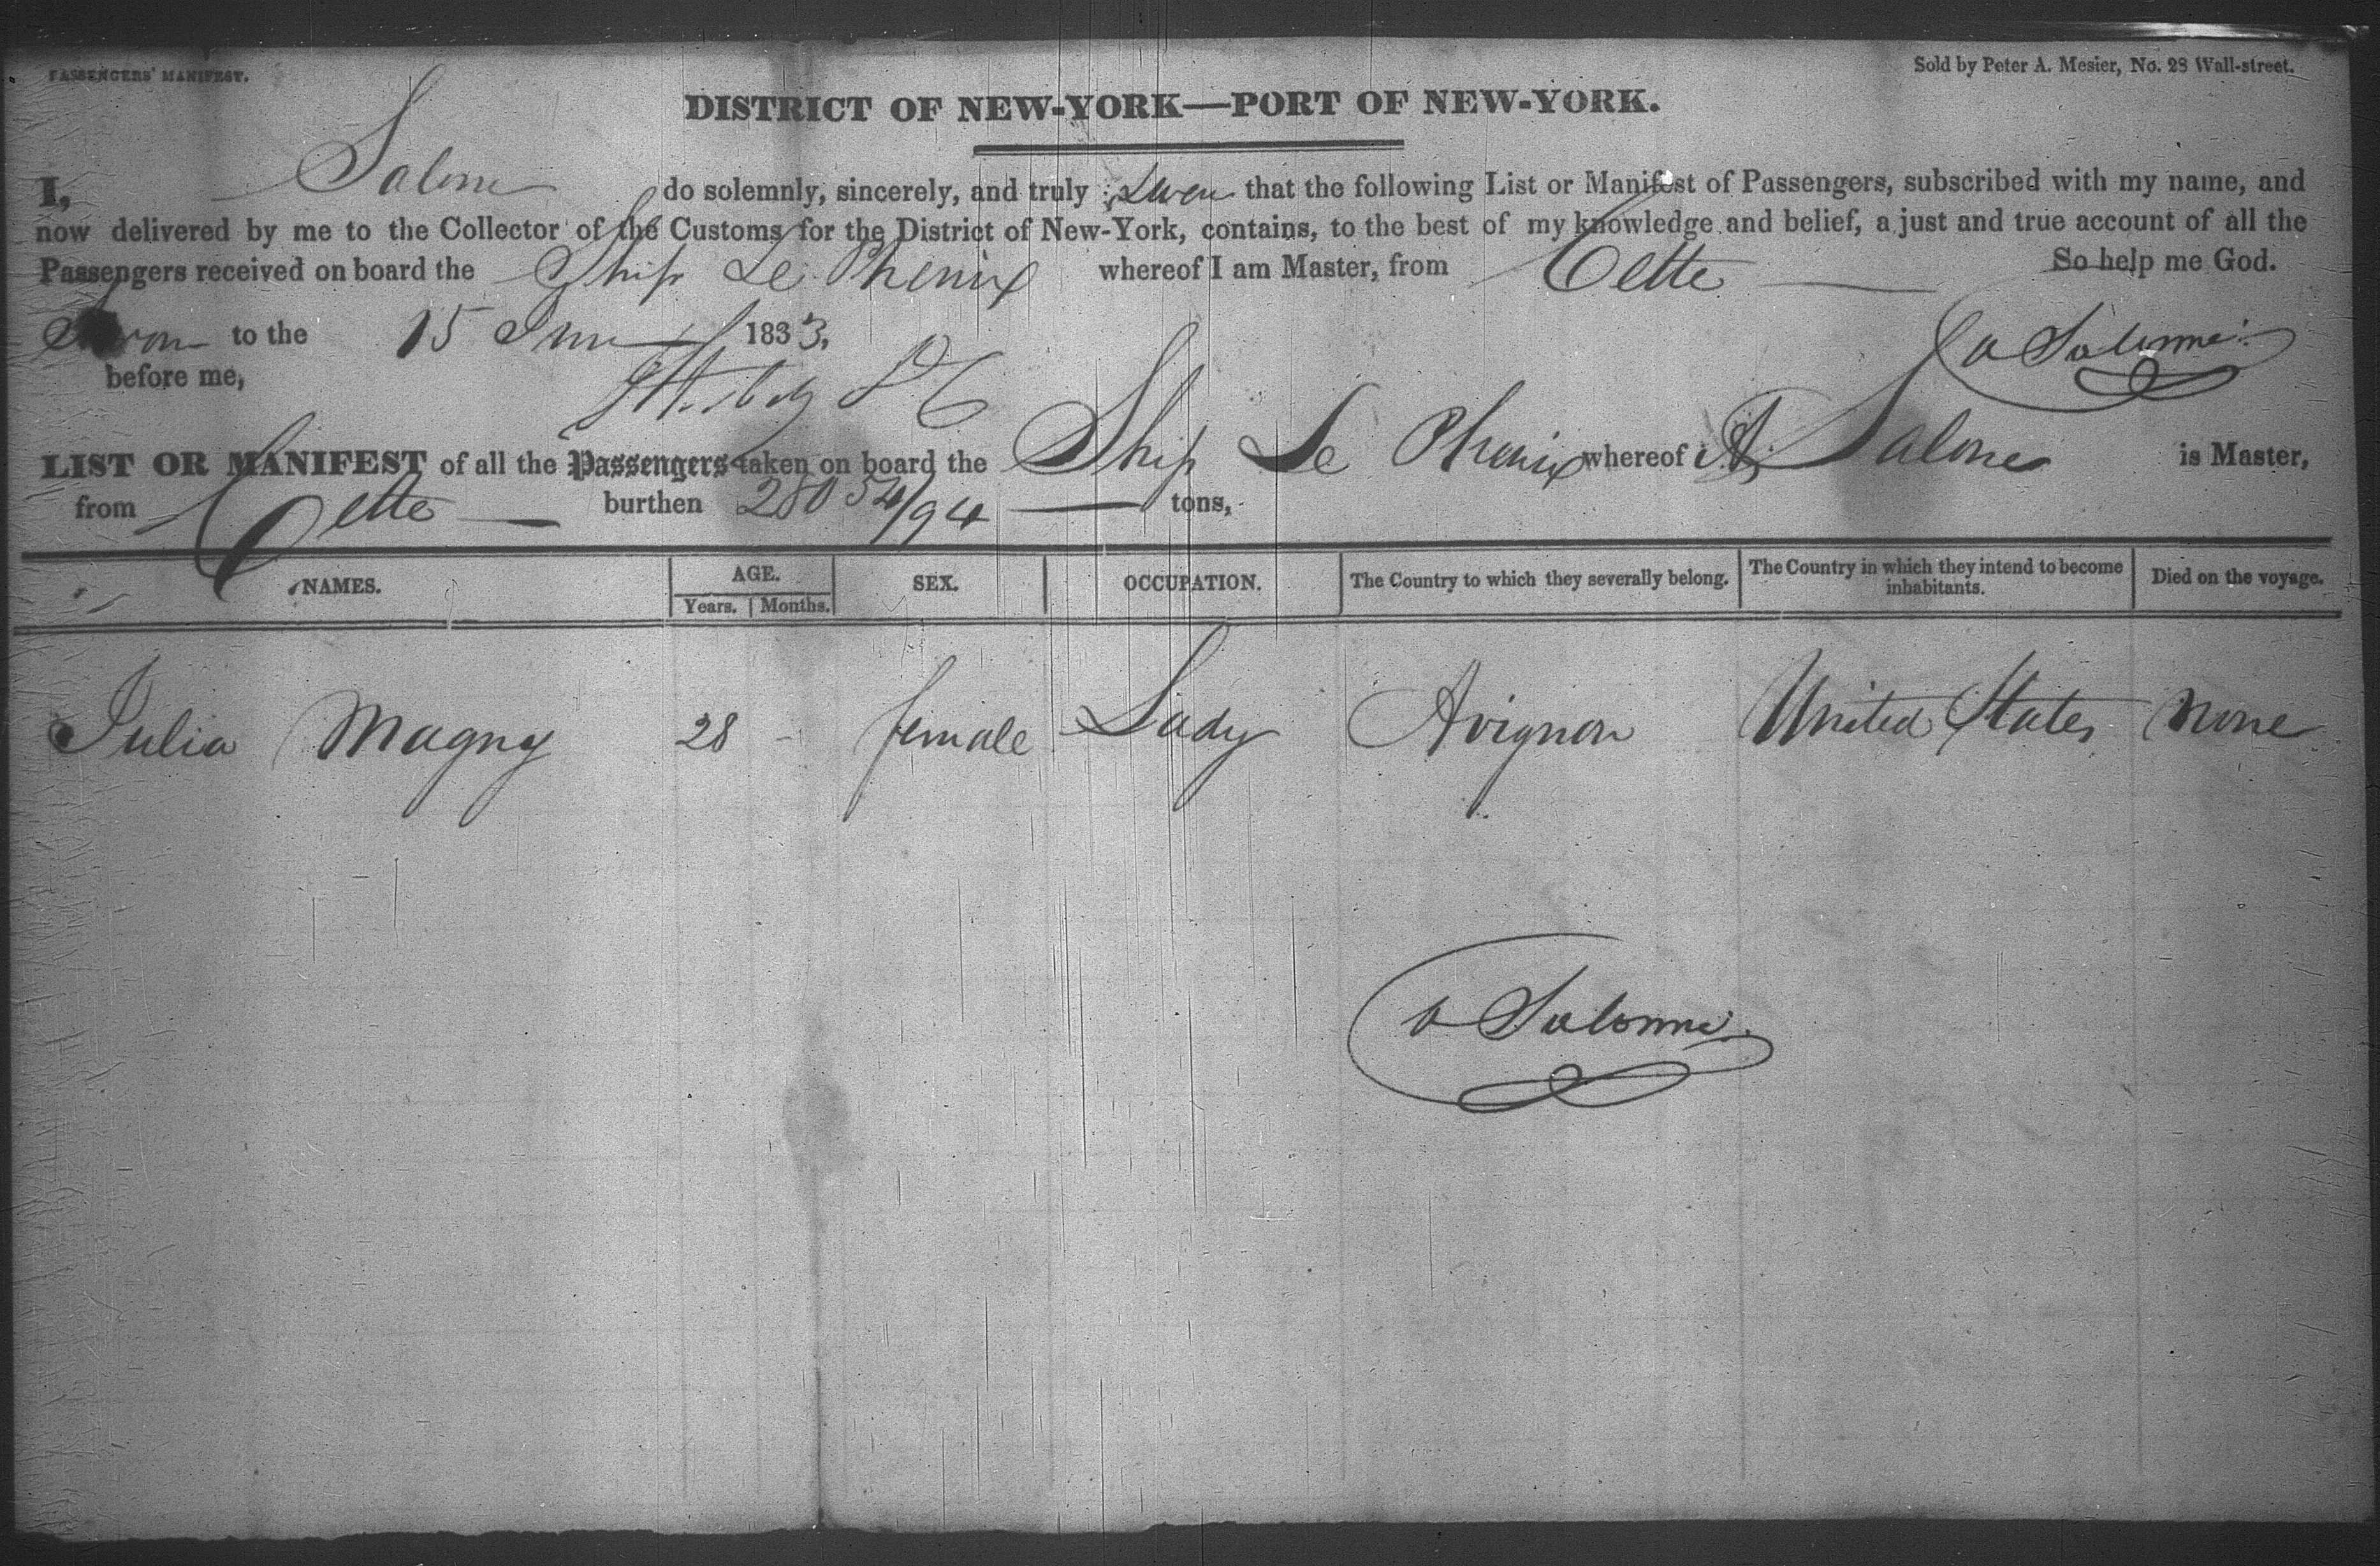 PASSENGERS' MANIFEST.
Sold by Peter A. Mesier, No. 28 Wall-street.
DISTRICT OF NEW-YORK—PORT OF NEW-YORK.
I, Salone do solemnly, sincerely, and truly Swear that the following List or Manifest of Passengers, subscribed with my name, and
now delivered by me to the Collector of the Customs for the District of New-York, contains, to the best of my knowledge and belief, a just and true account of all the
Passengers received on board the Ship Le Phenix whereof I am Master, from Cette So help me God.
Sworn to the 15 June 1833,
a Salonne
before me,
LIST OR MANIFEST of all the Passengers taken on board the Ship Le Phenix whereof A. Salone is Master,
from Cette burthen 280 54/94 tons,
NAMES. AGE. SEX. OCCUPATION. The Country to which they severally belong. The Country in which they intend to become inhabitants. Died on the voyage.
Years. Months.
Julia Magny 28 - female Lady Avignon United States None
a Salonne